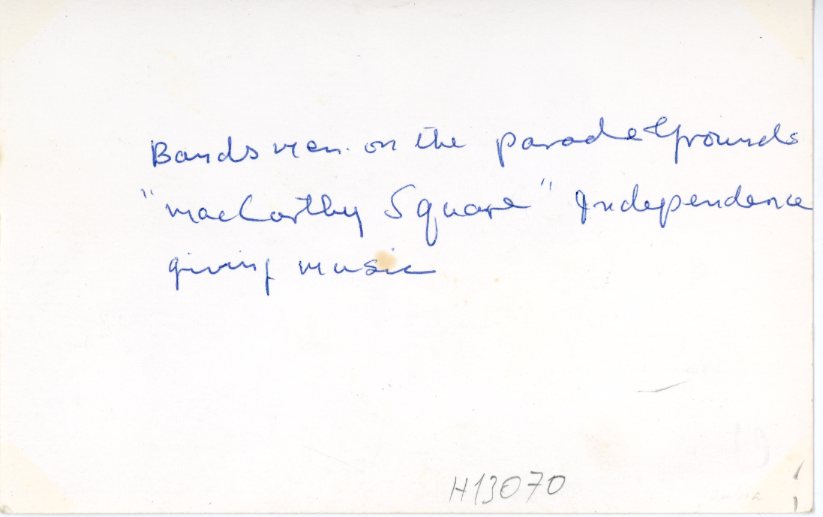 Bandsmen on the parade Grounds
"MacCarthy Square" Independence
giving music
H13070